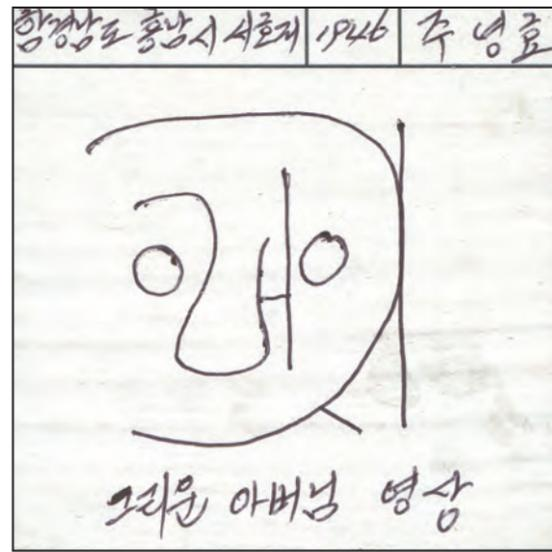 함경남도 흥남시 서호리 1946 주영효
그리운 아버님 영상